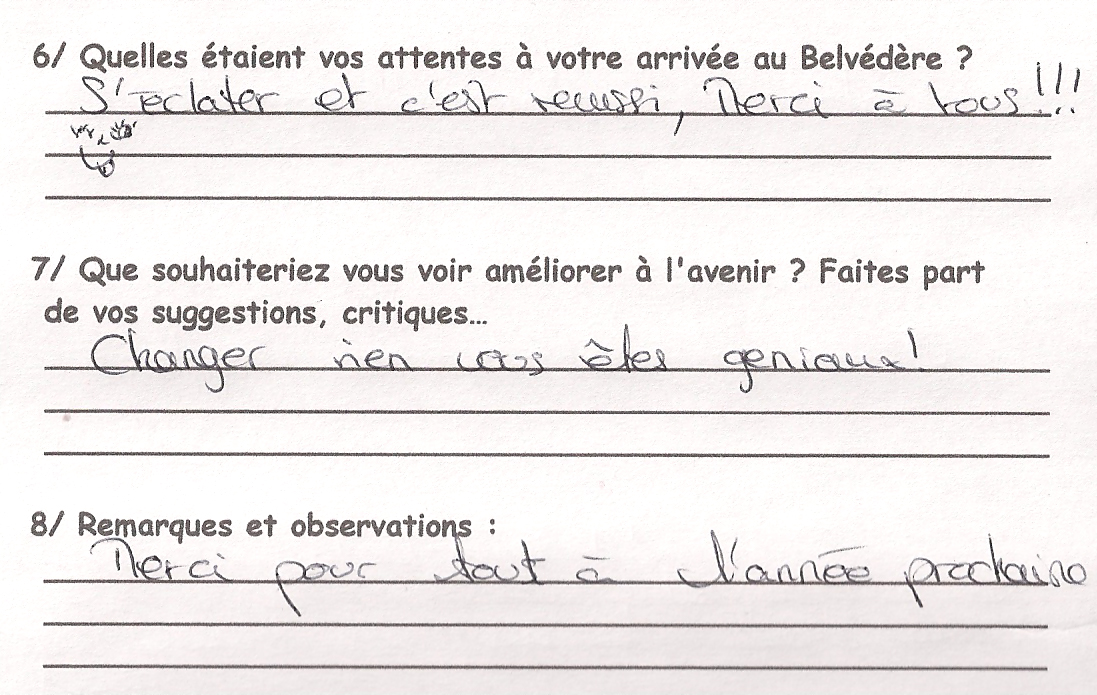 6/ Quelles étaient vos attentes à votre arrivée au Belvédère ?
S'eclater et c'est reussi, Merci à tous !!!
7/ Que souhaiteriez vous voir améliorer à l'avenir ? Faites part
de vos suggestions, critiques...
Changer rien vous êtes geniaux !
8/ Remarques et observations :
Merci pour tout à l'année prochaine